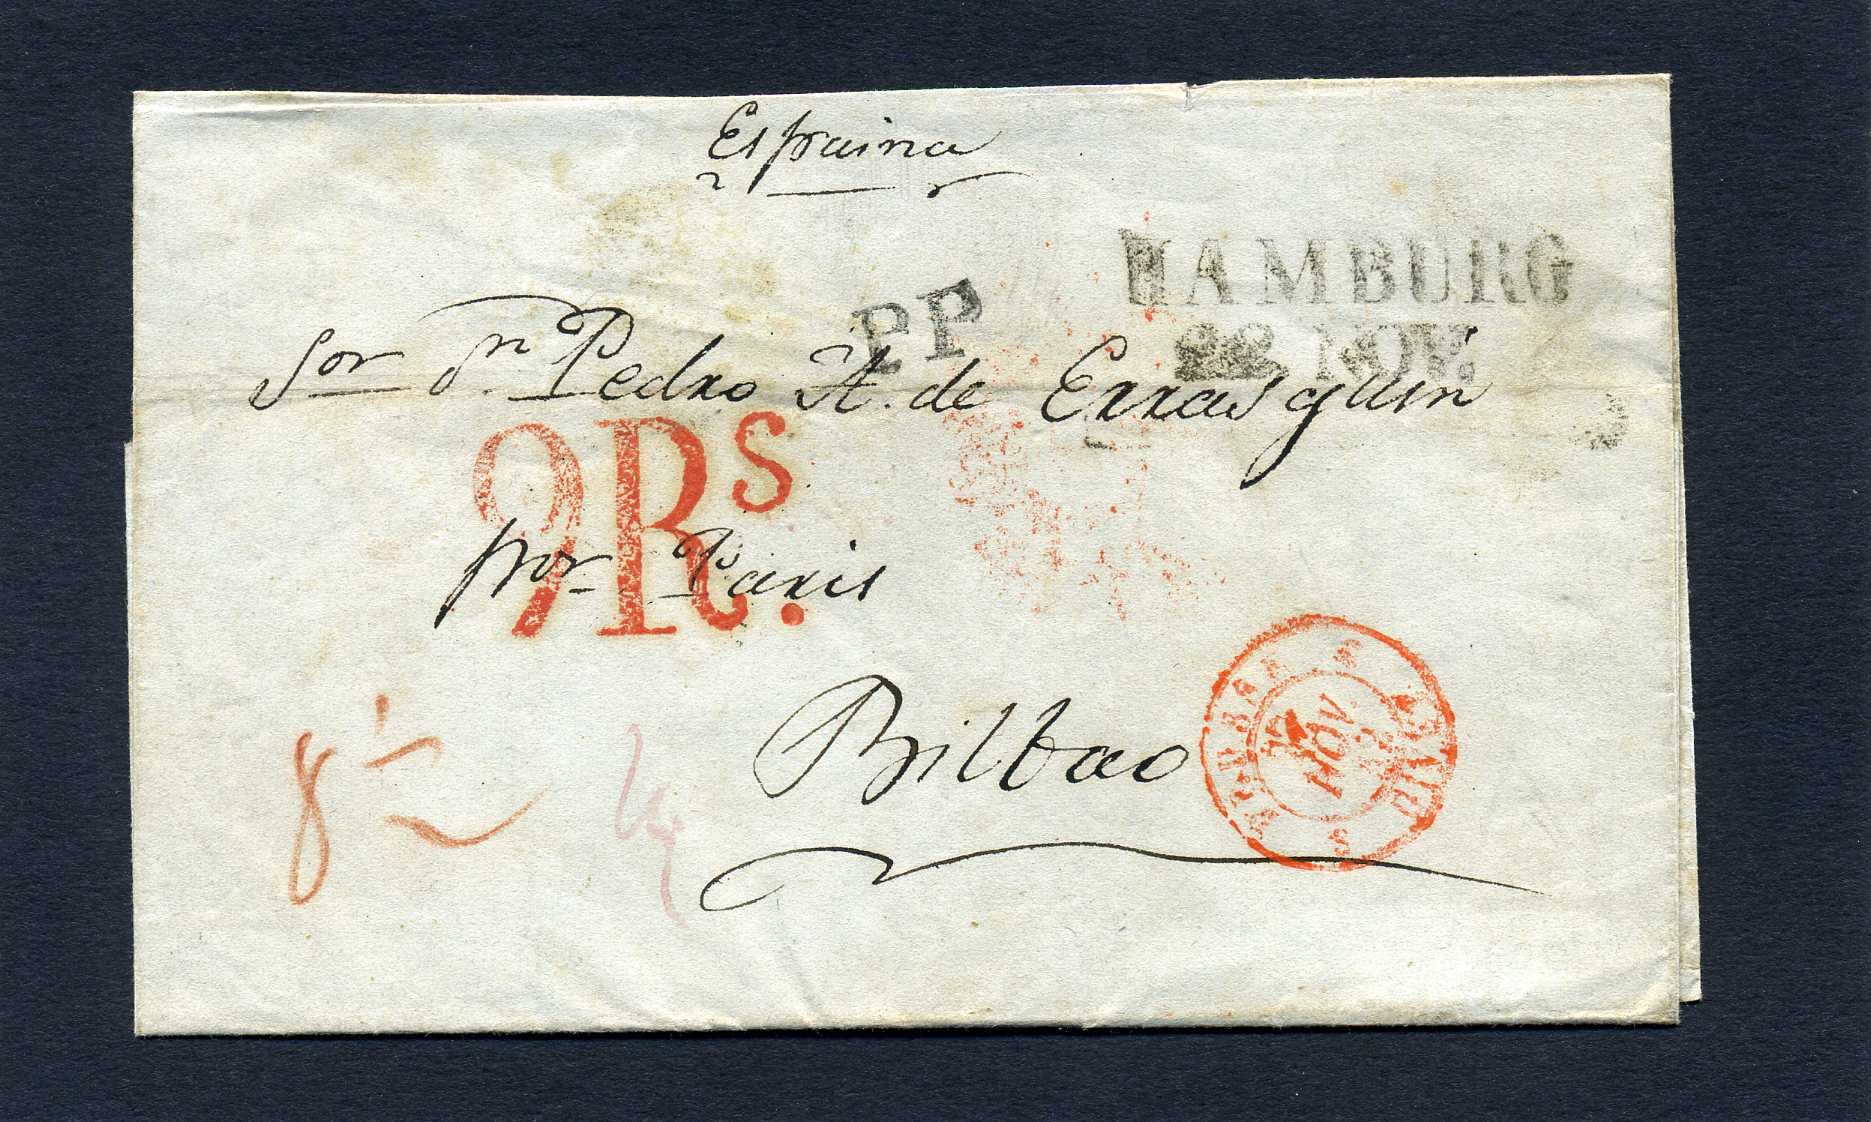 Espaina
PP
HAMBURG
22 NOV.
Sor Dn Pedro A. de Errasquin
9Rs.
por Paris
Bilbao
NOV.
8 1/2